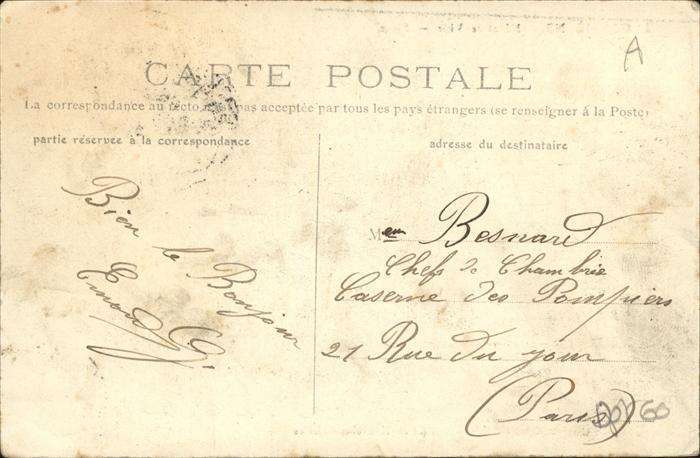 CARTE POSTALE
La correspondance au recto pas acceptée par tous les pays étrangers (se renseigner à la Poste)
partie réservée à la correspondance
adresse du destinataire
A
Bien le Bonjour
Meur Besnard
Chefs de Chambrie
Caserne des Pompiers
21 Rue du jour
(Paris)